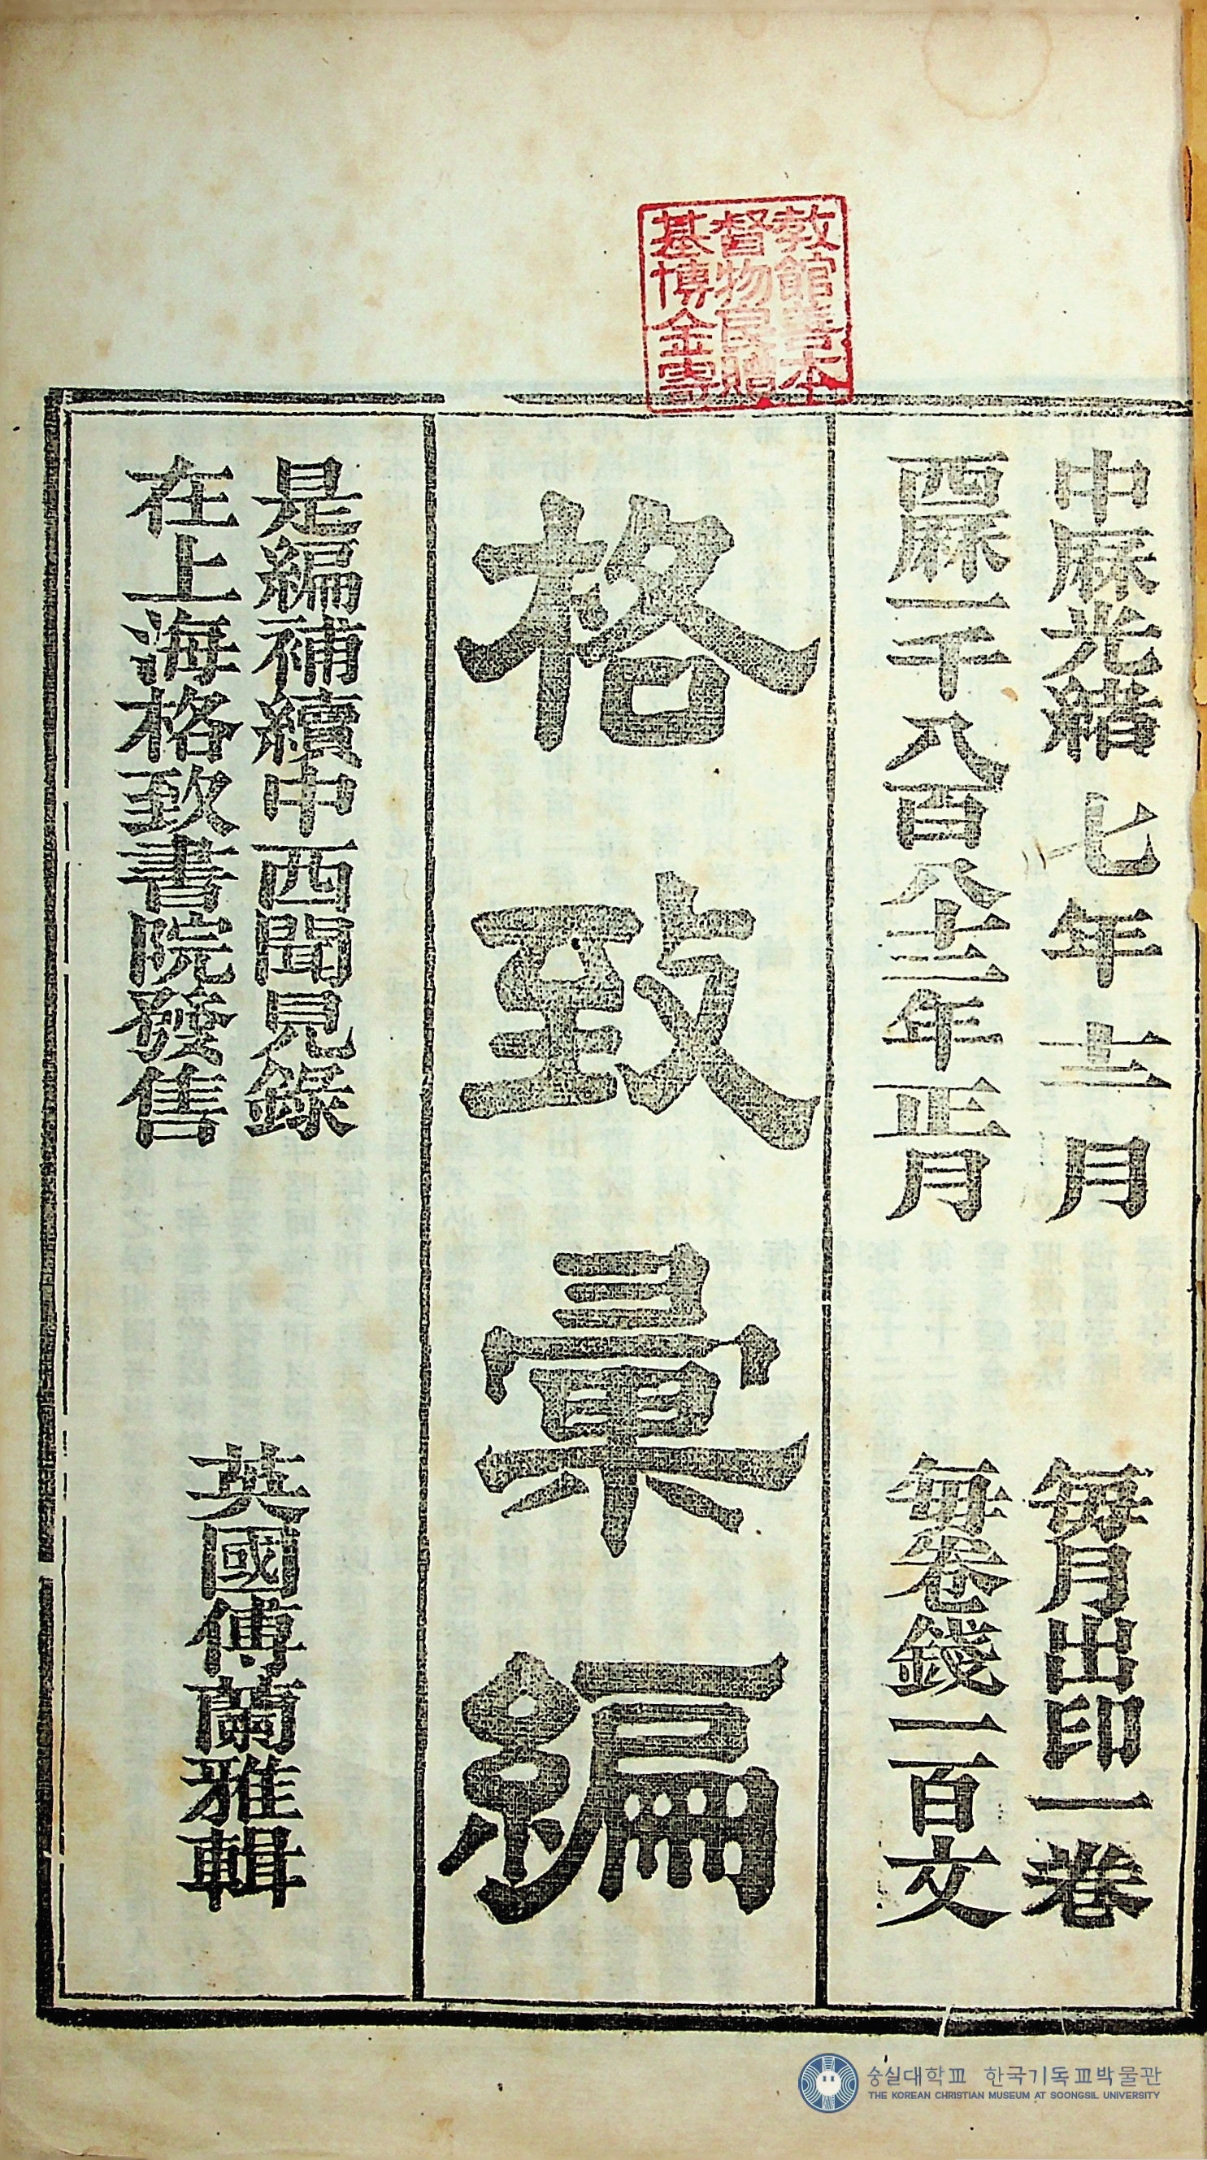 基督教
博物館
金良善
寄贈本
中厤光緒七年十二月 每月出印一卷
西厤一千八百八十二年正月 每卷錢一百文
格致彚編
是編補續中西聞見錄
在上海格致書院發售
英國傅蘭雅輯
숭실대학교 한국기독교박물관
THE KOREAN CHRISTIAN MUSEUM AT SOONGSIL UNIVERSITY